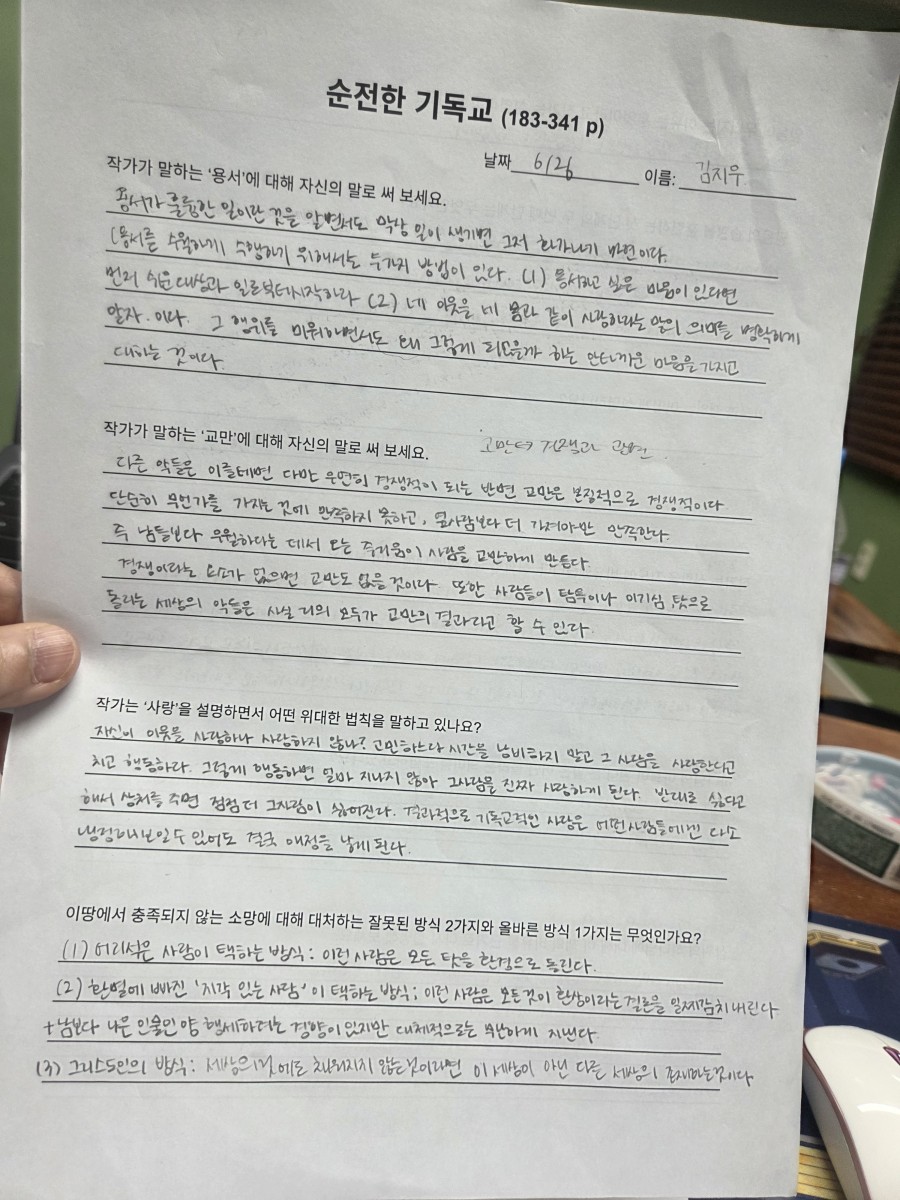 순전한 기독교 (183-341 p)
날짜 6/26 이름: 김지우
작가가 말하는 '용서'에 대해 자신의 말로 써 보세요.
용서가 훌륭한 일이란 것을 알면서도 막상 일이 생기면 그저 화가나기 마련이다.
(용서를 수월하게) 수행하기 위해서는 두가지 방법이 있다. (1) 용서하고 싶은 마음이 있다면
먼저 쉬운 대상과 일로부터 시작하라 (2) 네 이웃을 네 몸과 같이 사랑하라는 말의 의미를 명확하게
알자. 이다. 그 행위를 미워하면서도 왜 그렇게 되었을까 하는 안타까운 마음을 가지고
대하는 것이다.
작가가 말하는 '교만'에 대해 자신의 말로 써 보세요.
다른 악들은 이를테면 다만 우연히 경쟁적이 되는 반면 교만은 본질적으로 경쟁적이다
단순히 무언가를 가지는 것에 만족하지 못하고, 옆사람보다 더 가져야만 만족한다.
즉 남들보다 우월하다는 데서 오는 즐거움이 사람을 교만하게 만든다.
경쟁이라는 요소가 없으면 교만도 없을 것이다. 또한 사람들이 탐욕이나 이기심 탓으로
돌리는 세상의 악들은 사실 거의 모두가 교만의 결과라고 할 수 있다.
작가는 '사랑'을 설명하면서 어떤 위대한 법칙을 말하고 있나요?
자신이 이웃을 사랑하나 사랑하지 않나? 고민하느라 시간을 낭비하지 말고 그 사람을 사랑한다고
치고 행동하라. 그렇게 행동하면 얼마 지나지 않아 그사람을 진짜 사랑하게 된다. 반대로 싫다고
해서 상처를 주면 점점 더 그사람이 싫어진다. 결과적으로 기독교적인 사랑은 어떤사람들에겐 다소
냉정해보일수 있어도 결국 애정을 낳게 된다.
이땅에서 충족되지 않는 소망에 대해 대처하는 잘못된 방식 2가지와 올바른 방식 1가지는 무엇인가요?
(1) 어리석은 사람이 택하는 방식: 이런 사람은 모든 탓을 환경으로 돌린다.
(2) 환멸에 빠진 '지각 있는 사람'이 택하는 방식: 이런 사람은 모든것이 환상이라는 결론을 일찌감치 내린다
+ 남보다 나은 인물인 양 행세하려는 경향이 있지만 대체적으로는 무난하게 지낸다.
(3) 그리스도인의 방식: 세상의 것에도 채워지지 않는것이라면 이 세상이 아닌 다른 세상이 존재하는것이다